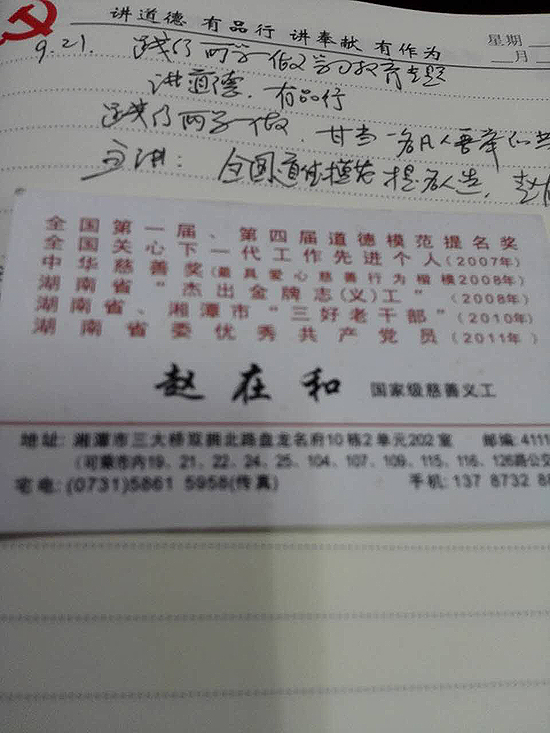 讲道德 有品行 讲奉献 有作为
星期
月
9.21. 践行两学一做学习教育专题
讲道德、有品行
践行两学一做，甘当一名凡人善举的共
主讲：全国道德模范提名人选，赵
全国第一届、第四届道德模范提名奖
全国关心下一代工作先进个人(2007年)
中华慈善奖(最具爱心慈善行为楷模2008年)
湖南省“杰出金牌志(义)工”(2008年)
湖南省、湘潭市“三好老干部”(2010年)
湖南省委优秀共产党员(2011年)
赵在和 国家级慈善义工
地址: 湘潭市三大桥双拥北路盘龙名府10栋2单元202室 邮编: 4111
(可乘市内19、21、22、24、25、104、107、109、115、116、126路公交
宅电: (0731)5861 5958(传真) 手机: 137 8732 8